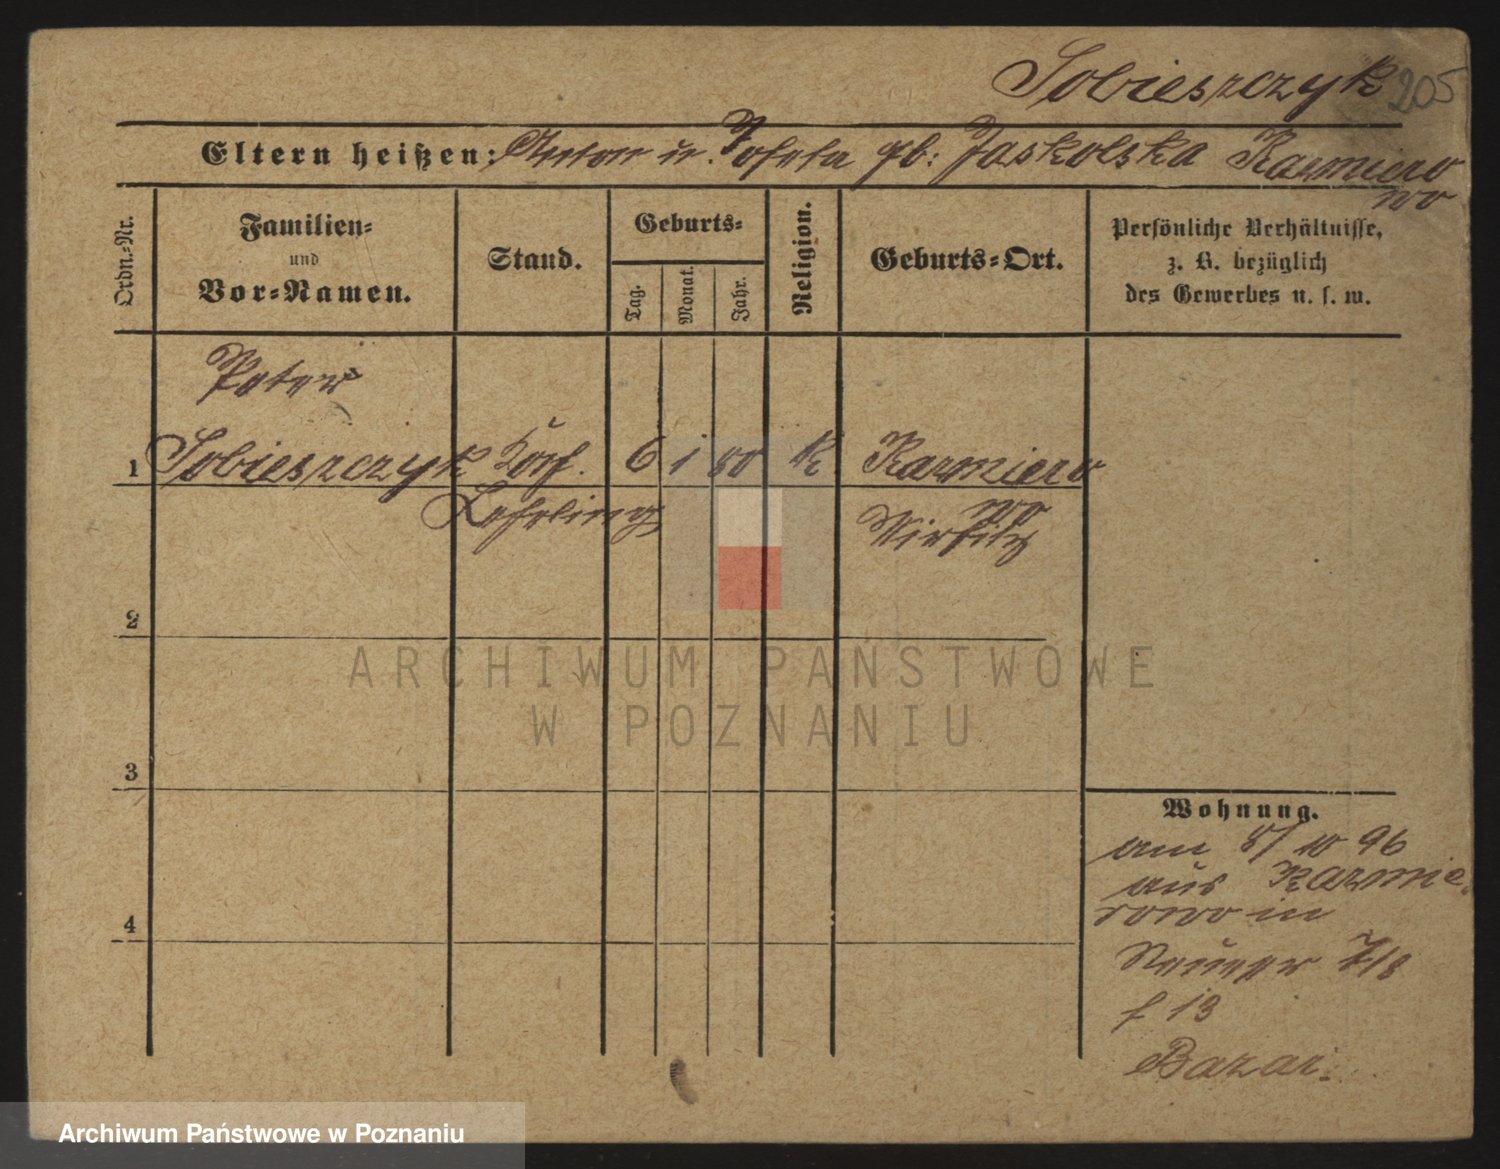 Sobieszczyk 205
Eltern heißen: Anton u. Josefa gb: Jaskolska Kazmiero
wo
Ordn.-Nr.
Familien-
und
Vor-Namen.
Stand.
Geburts-
Tag.
Monat.
Jahr.
Religion.
Geburts-Ort.
Persönliche Verhältnisse,
z. B. bezüglich
des Gewerbes u. s. w.
Peter
1 Sobieszczyk 6 1 80 k Kazmiero
Lehrling wo
Wirsitz
2
3
4
Wohnung.
am 8/10 96
aus Kazmie-
rowo in
7/8
f 13
Bazar.
ARCHIWUM PAŃSTWOWE
W POZNANIU
Archiwum Państwowe w Poznaniu